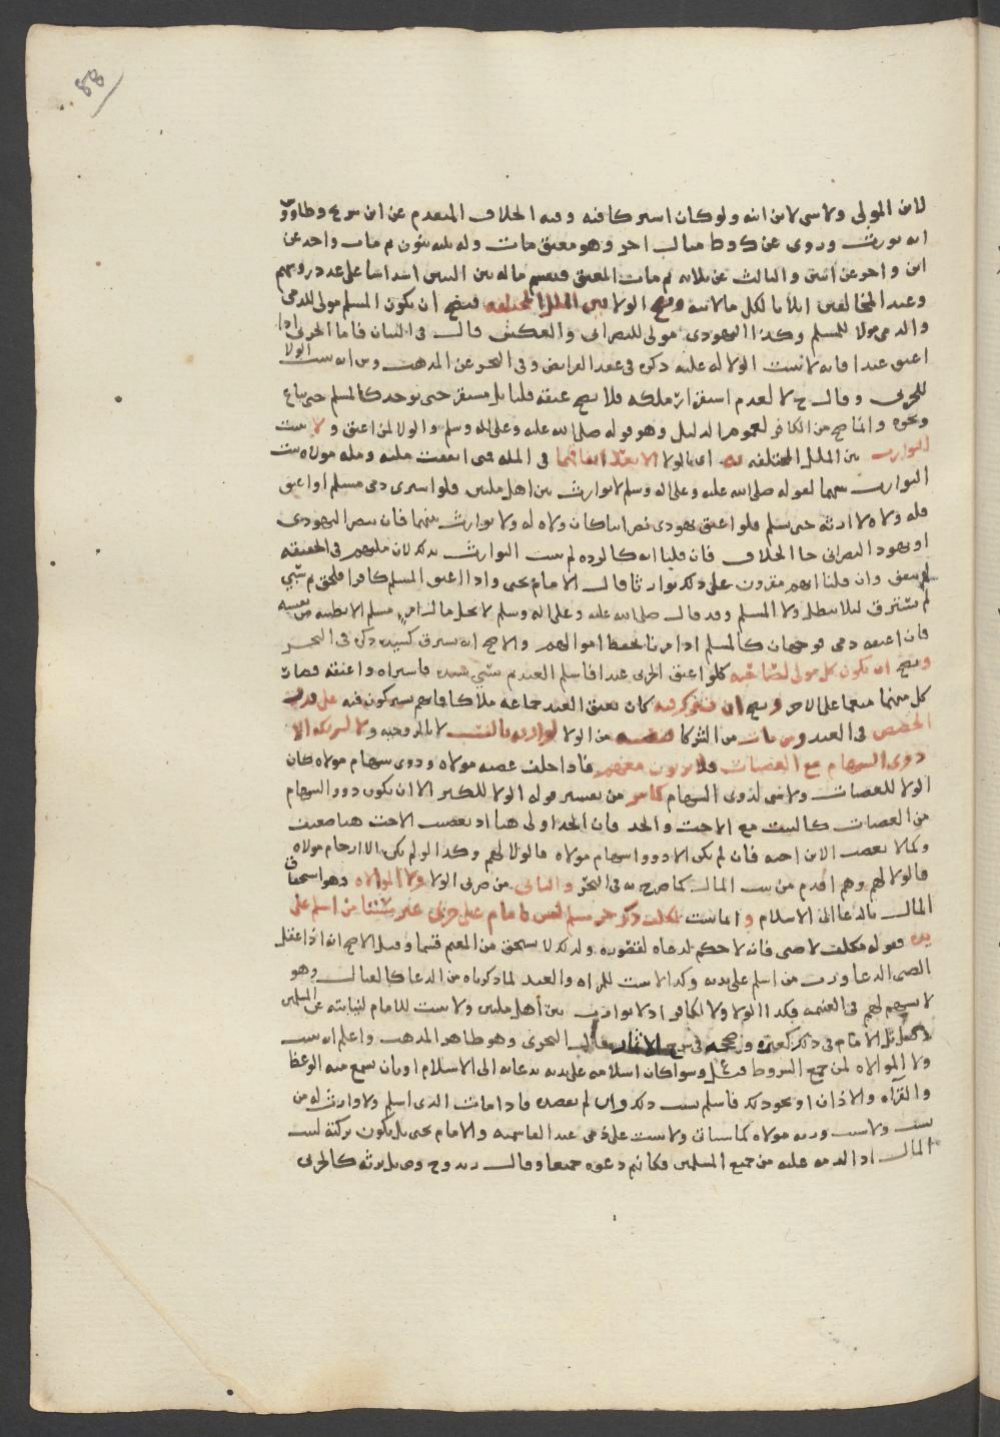 88
لابن المولى ولاسى لابن ابنه ولو كان اسير كافيه وفيه الخلاف المتقدم عن ابن سريح وطاووس
انه يورث وروى عن حات وله
ابن واخر عن اثنين والثالث عن ثلاثه ثم مات المعتق فيقسم ماله بين البنين اسداسا على عدد روسهم
وعند المخالفين اثلاثا لكل مالابيه ويصح الولا بين الملل المختلفه فيصح ان يكون المسلم مولى للذمى
والذمى مولا للمسلم وكذا اليهودى مولى للنصرانى والعكس قال فى البيان فاما الحربى اذا
اعتق عبدا فانه لا يثبت الولا له عليه ذكره فى عقد الفرايض وفى البحر عن المذهب انه يثبت الولا
للحربى وقال ح لا لعدم استقرار ملكه فلا يصح عتقه قلنا بل مستقر حتى يوخذ كالمسلم حتى يباع
ونحوه وانما صح من الكافر لعموم الدليل وهو قوله صلى الله عليه وعلى اله وسلم والولا لمن اعتق ولا يثبت
التوارث بين الملل المختلفه به اى بالولا الا بعد اتفاقهما فى المله فمتى اتفقت ملته ومله مولاه ثبت
التوارث بينهما لقوله صلى الله عليه وعلى اله وسلم لا توارث بين اهل ملتين فلو اشترى ذمى مسلم او اعتق
فله ولاه لا ارثه حتى يسلم فلو اعتق يهودى نصرانيا كان ولاه له ولا توارث بينهما فان تنصر اليهودى
او تهود النصرانى جا الخلاف فان قلنا انه كالرده لم يثبت التوارث بذلك لان ملتهم فى الحقيقه
لم تتفق وان قلنا انهم مقرون على ذلك توارثا قال الامام يحيى واذا اعتق المسلم كافرا فلحق ثم سبى
لم يسترق ليلا يبطل ولا المسلم وقد قال صلى الله عليه وعلى اله وسلم لا يحل مال امرى مسلم الا بطيبه من نفسه
فان اعتقه ذمى فوجهان كالمسلم اذا امرنا بحفظ اموالهم والاصح انه يسترق كسيده ذكره فى البحر
ويصح ان يكون كل مولى لصاحبه كلو اعتق الحربى عبدا فاسلم العبد ثم سبى سيده فاشتراه واعتقه فمات
كل منهما منعما على الاخر ويصح ان يشتركوا فيه كان يعتق العبد جماعه ملاكا فانهم يشتركون فيه على قدر
الحصص فى العبد ومن مات من الشركا فنصيبه من الولا لوارثه بالنسب لا بالزوجيه ولا شركه الا
ذوى السهام مع العصبات فلا يرثون معهم فاذا خلف عصبه مولاه وذوى سهام مولاه كان
الولا للعصبات ولا شى لذوى السهام كما مر من تفسير قوله الولا للكبر الا ان يكون ذووا السهام
من العصبات كالبنت مع الاخت والجد فان الجد اولى هنا اذ تعصيب الاخت هنا ضعيف
وكما لا يعصب الابن اخته فان لم يكن الا ذووا سهام مولاه فالولا لهم وكذا لو لم يكن الا ارحام مولاه
فالولا لهم وهم اقدم من بيت المال كما صرح به فى البحر والثانى من ضربى الولا ولا الموالاه وهو استحقاق
المال بالدعا الى الاسلام وانما يثبت لمكلف ذكر حر مسلم ليس بامام على حربى غير سبى اسلم على
يده فقوله مكلف لا صبى فانه لا حكم لدعاه لقصوره ولذلك لا يستحق من المغنم قسما وقيل الاصح انه اذا عقل
الصبى الدعا ورث من اسلم على يديه وكذا لا يثبت للمراه والعبد لما ذكرناه من الدعا كالقتال وهو
لا يسهم لهم فى الغنيمه فكذا الولا ولا لكافر اذ لا توارث بين اهل ملتين ولا يثبت للامام لنيابته عن المسلمين
الامام فى ذلك كغيره وصححه فى شرح الاثمار قال النجرى وهو ظاهر المذهب واعلم انه يثبت
ولا الموالاه لمن جمع الشروط وسوا كان اسلامه على يديه بدعائه الى الاسلام او بان سمع منه الوعظ
والقرآن والاذان او نحو ذلك فاسلم بسبب ذلك وان لم يقصده فاذا مات الذى اسلم ولا وارث له من
نسب ولا سبب ورثه مولاه كما سياتى ولا يثبت على ذمى عند القاسميه والامام يحيى بل يكون تركته لبيت
المال اذ الذمه عليه من جميع المسلمين فكانهم دعوه جميعا وقال بل يرثه كالحربى